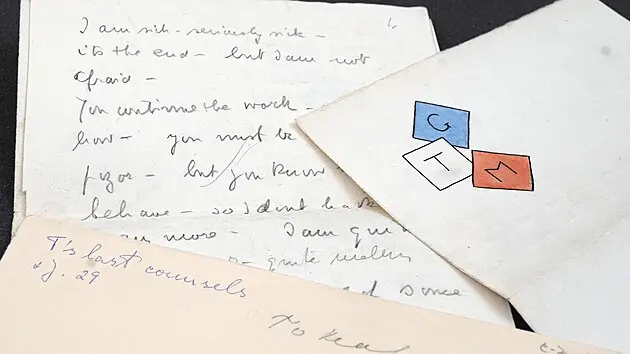 I am sick - seriously sick -
its the end - but I am not
afraid -
You continue the work -
how - you must be
- but you know
behave - so I dont
more - I am
- quite
G
T
M
T's last counsels
J. 29
To